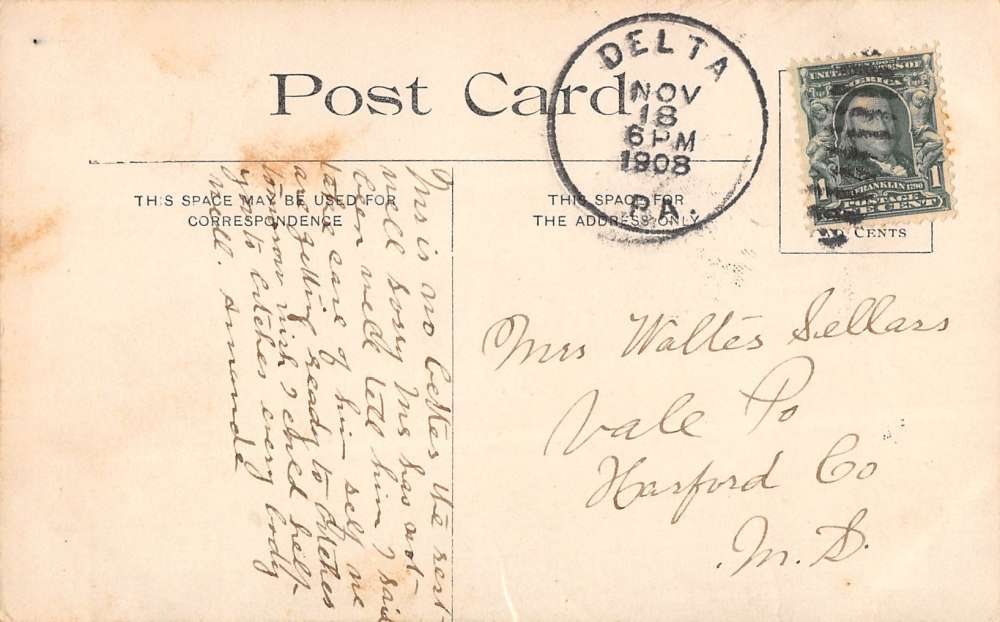 Post Card
DELTA
NOV
18
6 PM
1908
PA.
SERIES 1902
UNITED STATES OF
AMERICA
1
FRANKLIN 1790
1
POSTAGE
ONE CENT
CENTS
THIS SPACE MAY BE USED FOR
CORRESPONDENCE
THIS SPACE FOR
THE ADDRESS ONLY
Mrs is no better the rest
well sorry Mrs has not
been well tell him I said
take care of him self me
are getting ready to
tomorrow wish I could help
you to every body
well. Amanda
Mrs Walter Sellars
Vale Po
Harford Co
M.D.